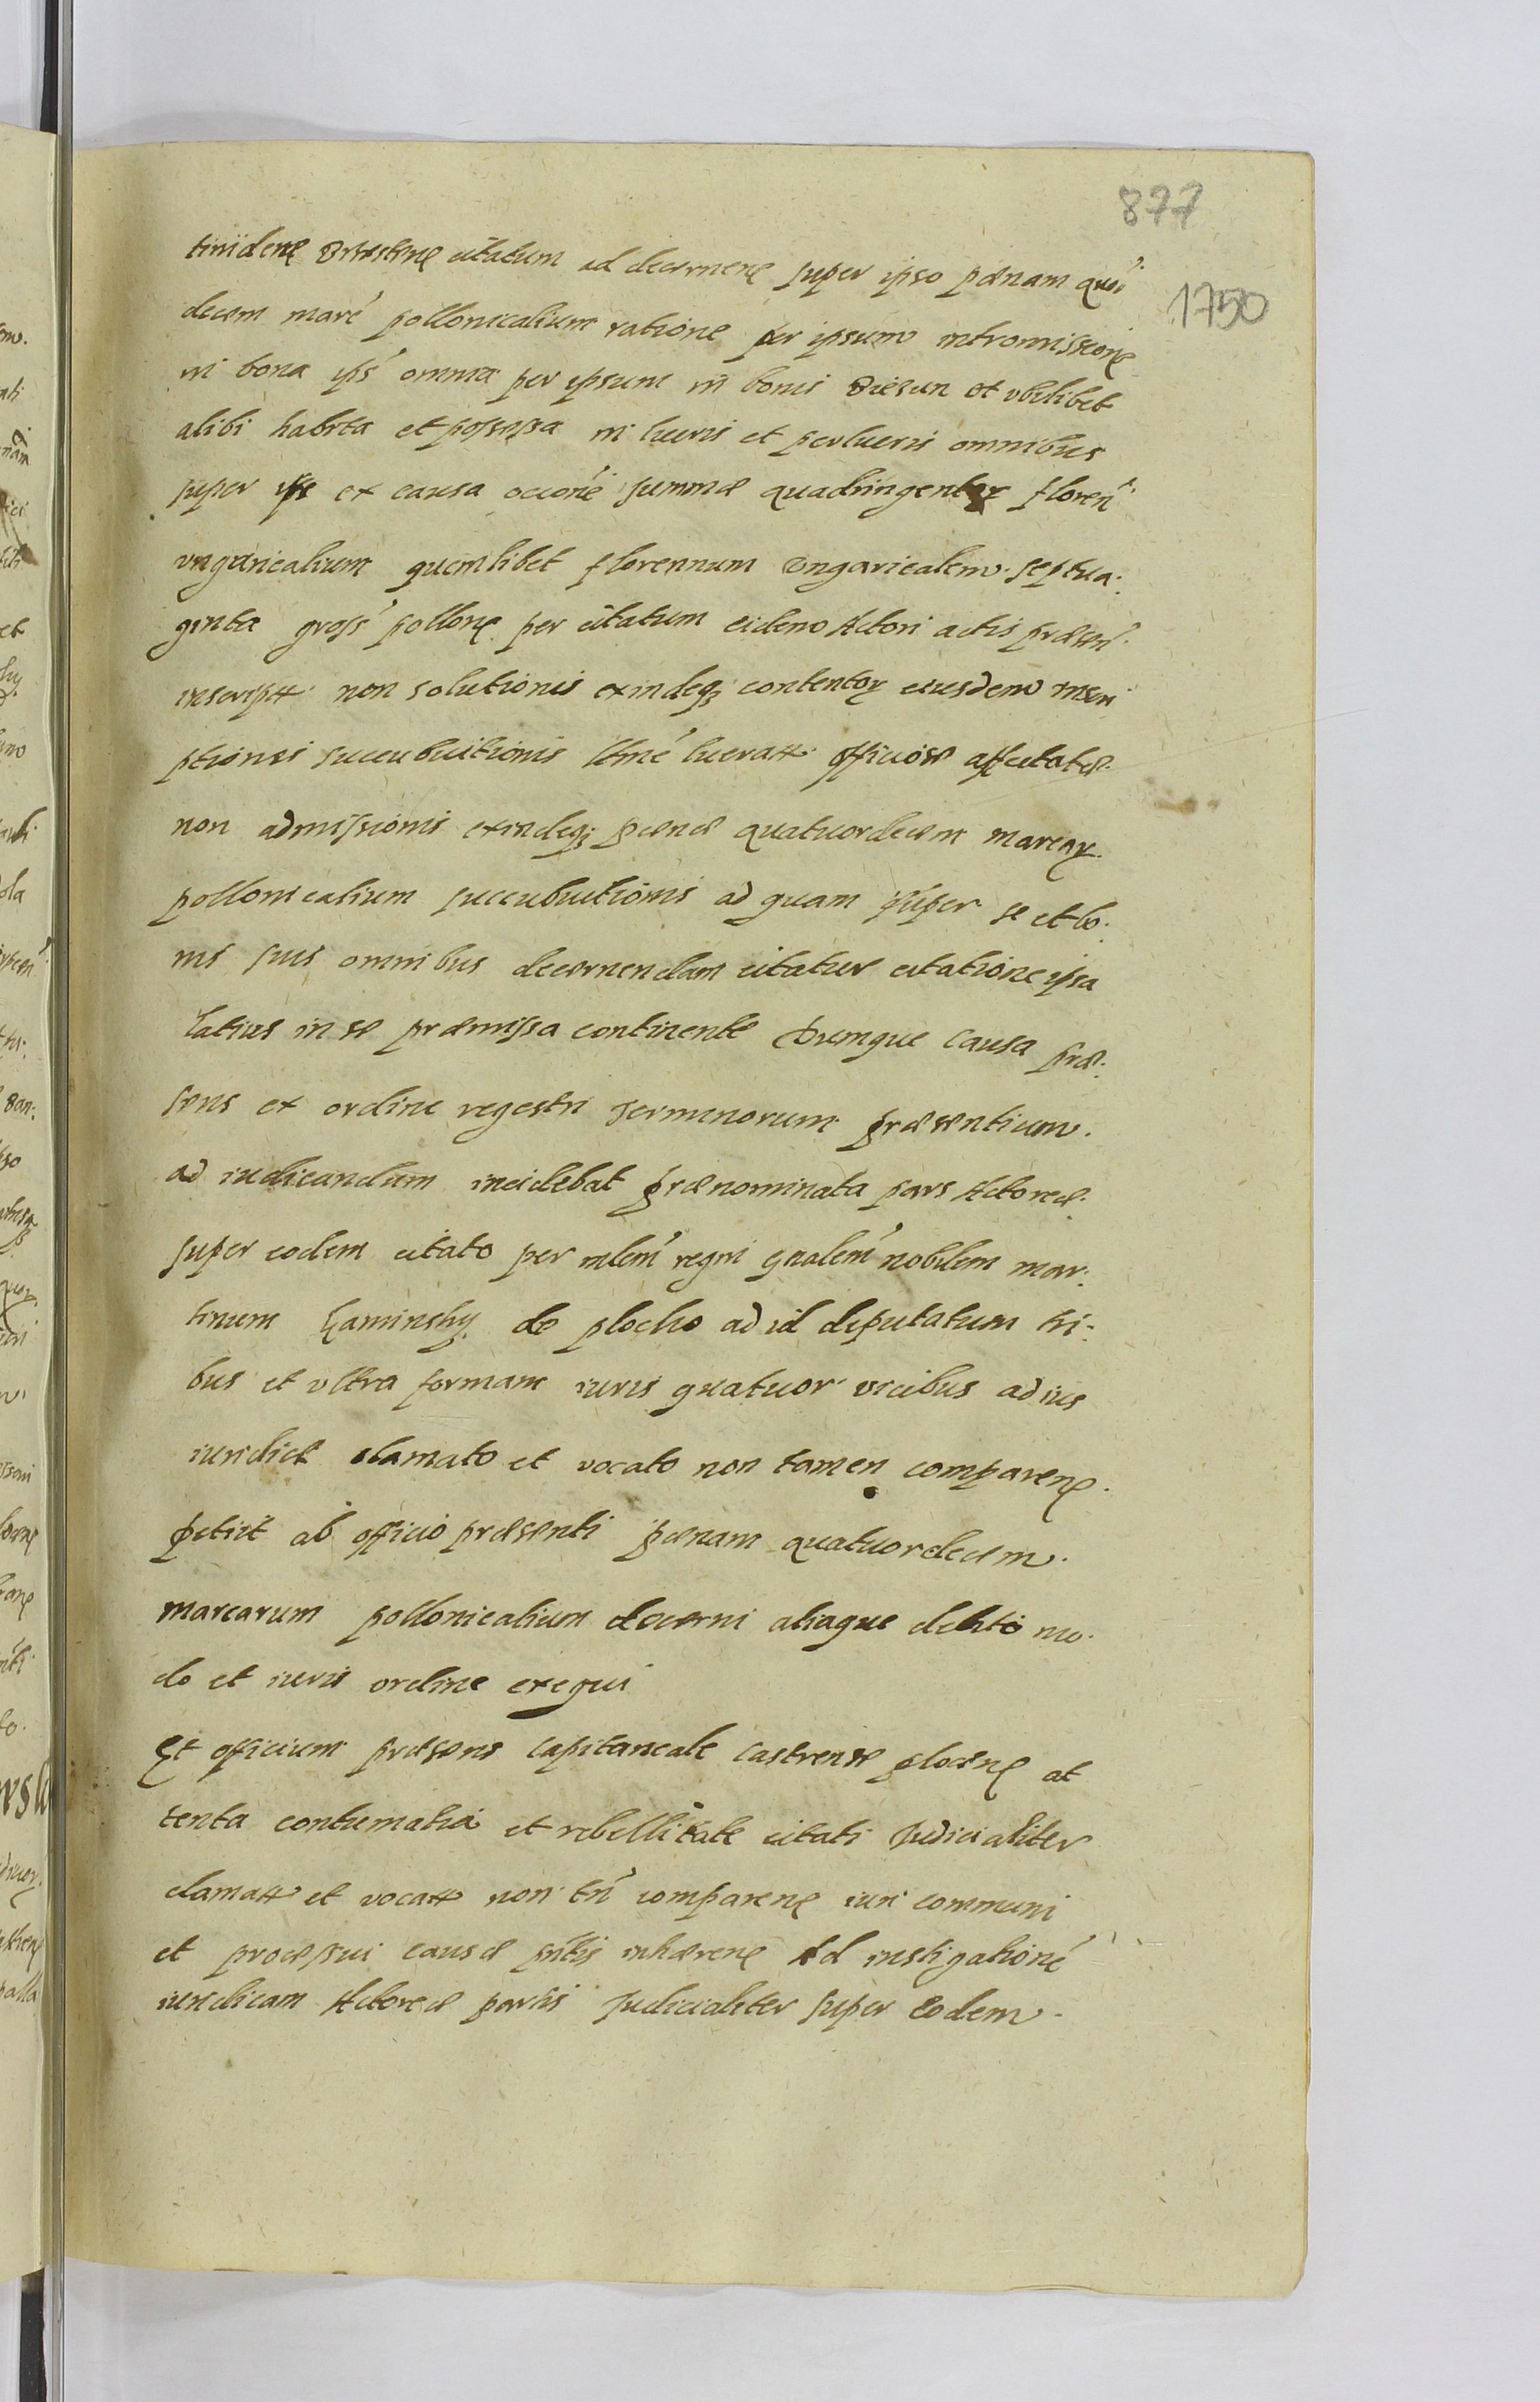 877
1750
citatum ad decernen super ipso pænam
decem marc pollonicalium ratione per ipsum intromissione
in bona ips omnia per ipsum in bonis et vbilibet
alibi habita et possessa in lucris et perlucris omnibus
super ex causa summæ quadringentor floren
vngaricalium quemlibet florennum Vngaricalem septua:
ginta gross pollone per citatum eidem Actori actis præsen
inscript non solutionis exindeq contentor eiusdem inscri
ptionis succubuitionis officiose affectatæ
non admissionis exindeq pænæ quatuordecem marcar
pollonicalium succubuitionis ad quam super se et bo:
nis suis omnibus decernendam citatur citatione ipsa
latius in se præmissa continente Dumque causa præ:
sens ex ordine regestri Terminorum præsentium.
ad iudicandum incidebat prænominata pars Actorea
super eodem citato per mlem regni gnalem nobilem mar:
tinum Kaminsky de plocko ad id deputatum tri:
bus et vltra formam iuris quatuor vicibus ad ius
iuridice clamato et vocato non tamen comparen
petiit ab officio præsenti pænam quatuordecem
marcarum pollonicalium decerni aliaque debito mo
do et iuris ordine exequi
Et officium præsens capitaneale castrense plocen at
tenta contumatia et rebellitate citati Judicialiter
clamat et vocat non tn comparen iuri communi
et processui causæ pntis inhæren Ad instigatione
iuridicam Actoreæ partis Judicialiter super eodem